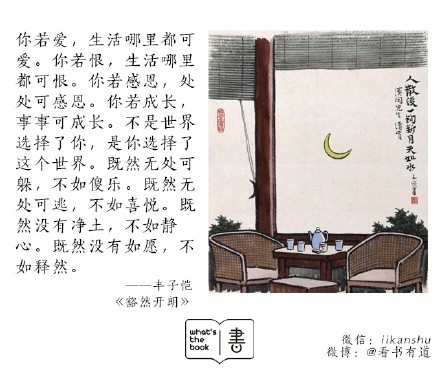 你若爱，生活哪里都可
爱。你若恨，生活哪里
都可恨。你若感恩，处
处可感恩。你若成长，
事事可成长。不是世界
选择了你，是你选择了
这个世界。既然无处可
躲，不如傻乐。既然无
处可逃，不如喜悦。既
然没有净土，不如静
心。既然没有如愿，不
如释然。
——丰子恺
《豁然开朗》
人散後一钩新月天如水
what's
the
book
書
微信：iikanshu
微博：@看书有道